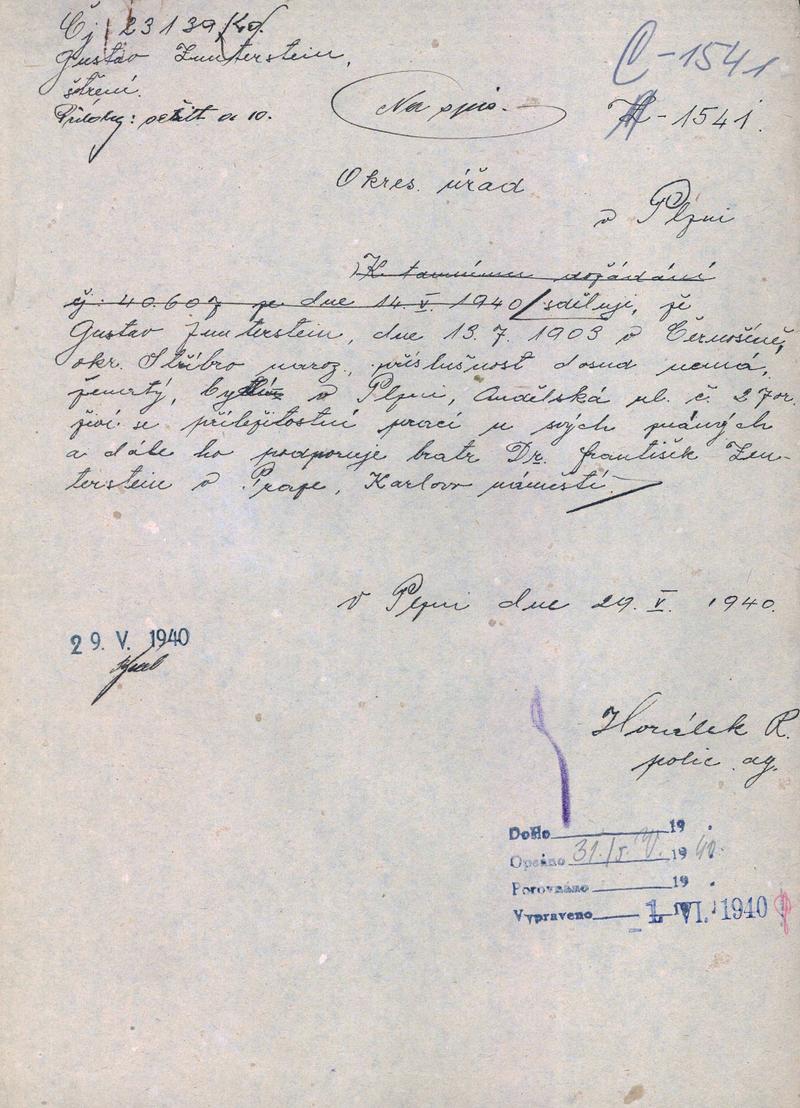 Čj 23139/40.
Gustav Zunterstein,
šetření.
Přílohy: sešit o 10.
Na spis.
C-1541
-1541.
Okres. úřad
v Plzni
K tamnímu dožádání
čj: 40.607 ze dne 14. V. 1940/ sděluji, že
Gustav Zunterstein, dne 13. 7. 1903 v Černošíně,
okr. Stříbro naroz., příslušnost dosud nemá,
ženatý, bytem v Plzni, Andělská ul. č. 27
živí se příležitostní prací u svých známých
a dále ho podporuje bratr Dr. František Zun-
terstein v Praze, Karlovo náměstí.
V Plzni dne 29. V. 1940.
29. V. 1940
Horálek R.
polic. ag.
Došlo 19 .
Opsáno 31./5. V. 19 40.
Porovnáno 19 .
Vypraveno 1. VI. 1940